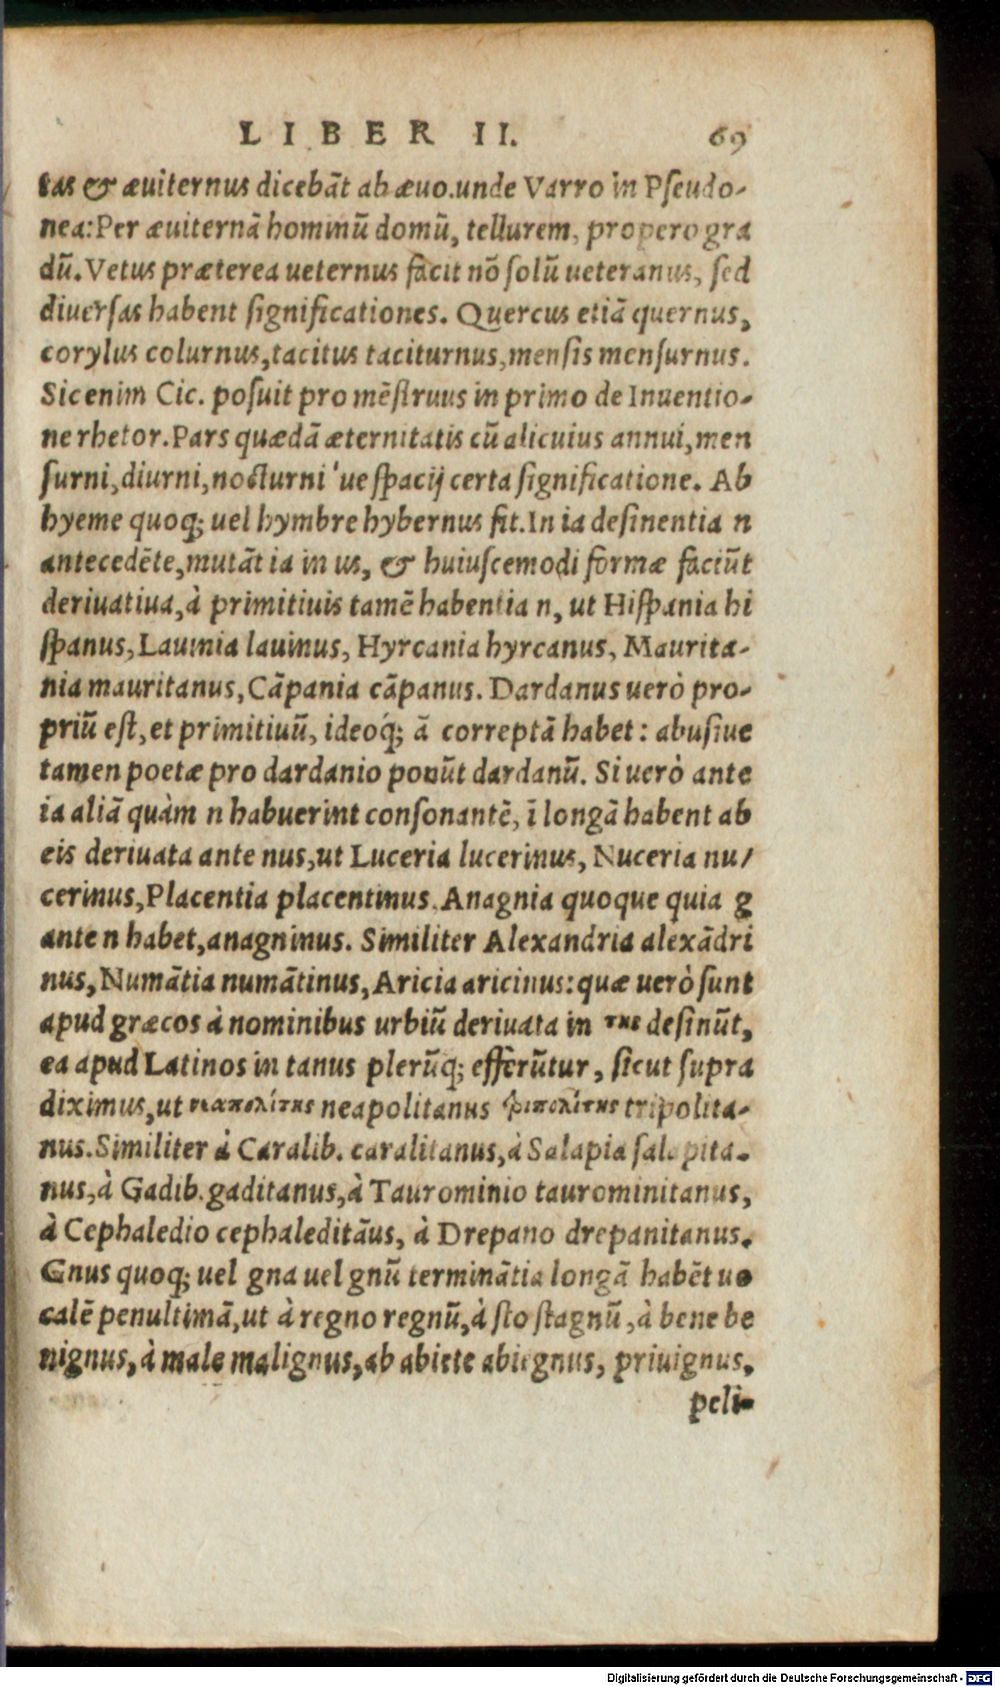 LIBER II. 69
tas & æuiternus dicebãt ab æuo. unde Varro in Pseudo-
nea: Per æuiternã hominũ domũ, tellurem, propero gra
dũ. Vetus præterea ueternus facit nõ solũ ueteranus, sed
diuersas habent significationes. Quercus etiã quernus,
corylus colurnus, tacitus taciturnus, mensis mensurnus.
Sic enim Cic. posuit pro mẽstruus in primo de Inuentio-
ne rhetor. Pars quædã æternitatis cũ alicuius annui, men
surni, diurni, nocturni 'ue spacij certa significatione. Ab
hyeme quoq; uel hymbre hybernus fit. In ia desinentia n
antecedẽte, mutãt ia in us, & huiuscemodi formæ faciũt
deriuatiua, à primitiuis tamẽ habentia n, ut Hispania hi
spanus, Lauinia lauinus, Hyrcania hyrcanus, Maurita-
nia mauritanus, Cãpania cãpanus. Dardanus uerò pro-
priũ est, et primitiuũ, ideoq́; ã correptã habet: abusiue
tamen poetæ pro dardanio ponũt dardanũ. Si uerò ante
ia aliã quàm n habuerint consonantẽ, ĩ longã habent ab
eis deriuata ante nus, ut Luceria lucerinus, Nuceria nu/
cerinus, Placentia placentinus. Anagnia quoque quia g
ante n habet, anagninus. Similiter Alexandria alexãdri
nus, Numãtia numãtinus, Aricia aricinus: quæ uerò sunt
apud græcos à nominibus urbiũ deriuata in της desinũt,
ea apud Latinos in tanus plerũq; efferũtur, sicut supra
diximus, ut νεαπολίτης neapolitanus τριπολίτης tripolita-
nus. Similiter à Caralib. caralitanus, à Salapia salapita-
nus, à Gadib. gaditanus, à Taurominio taurominitanus,
à Cephaledio cephaleditãus, à Drepano drepanitanus.
Gnus quoq; uel gna uel gnũ terminãtia longã habẽt uo
calẽ penultimã, ut à regno regnũ, à sto stagnũ, à bene be
nignus, à male malignus, ab abiete abiegnus, priuignus,
peli-
Digitalisierung gefördert durch die Deutsche Forschungsgemeinschaft - DFG